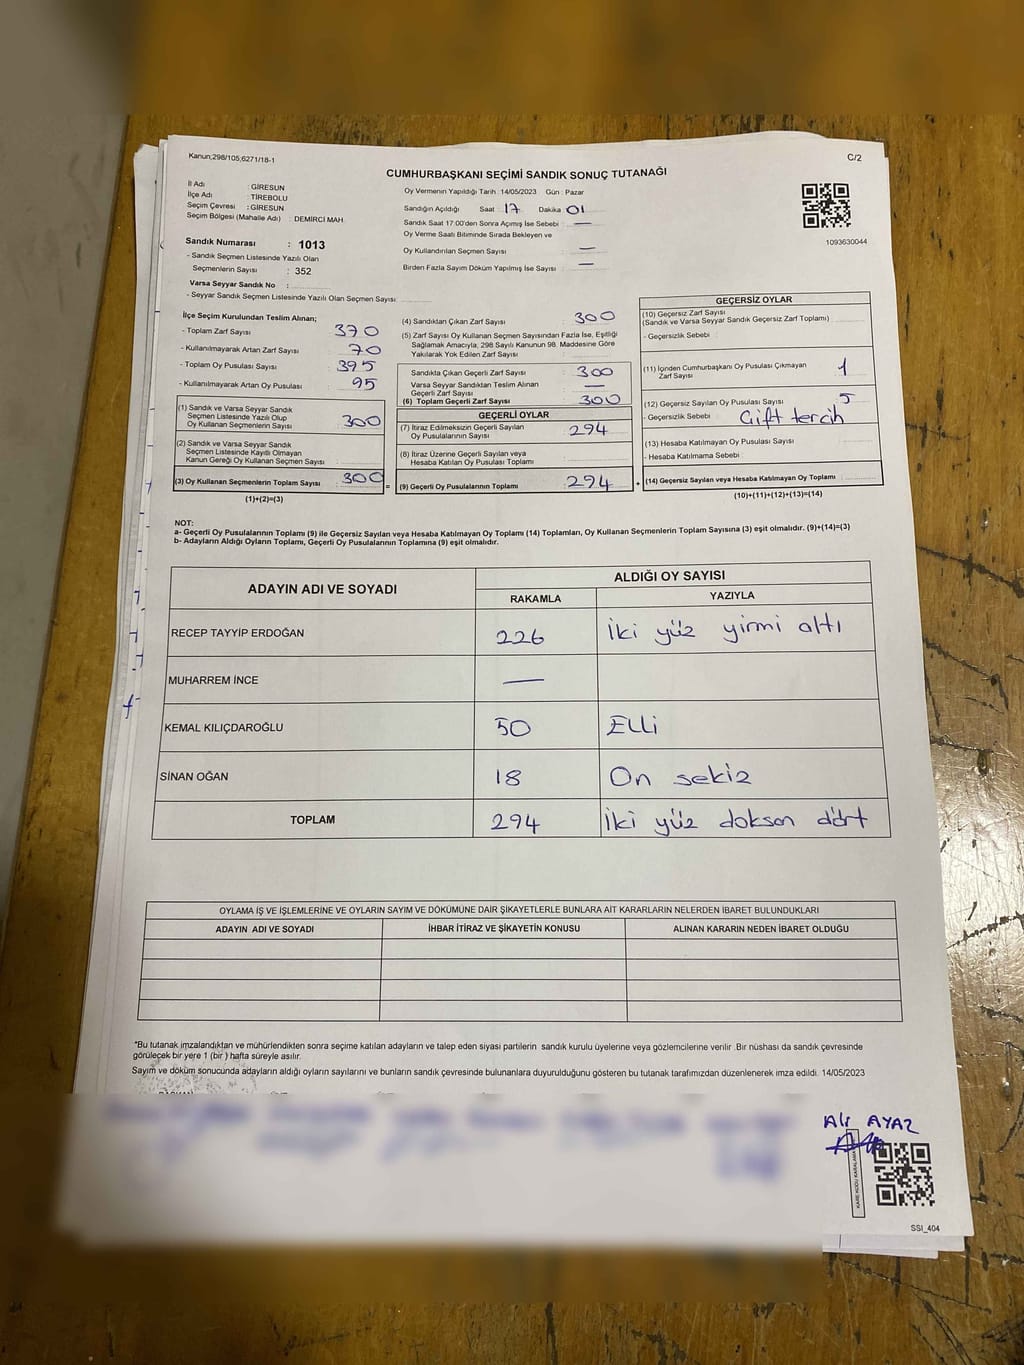 Kanun,298/105,6271/18-1
C/2
CUMHURBAŞKANI SEÇİMİ SANDIK SONUÇ TUTANAĞI
İl Adı : GİRESUN
İlçe Adı : TİREBOLU
Seçim Çevresi : GİRESUN
Seçim Bölgesi (Mahalle Adı) : DEMİRCİ MAH.
Sandık Numarası : 1013
- Sandık Seçmen Listesinde Yazılı Olan
Seçmenlerin Sayısı : 352
Varsa Seyyar Sandık No :
- Seyyar Sandık Seçmen Listesinde Yazılı Olan Seçmen Sayısı :
Oy Vermenin Yapıldığı Tarih : 14/05/2023 Gün : Pazar
Sandığın Açıldığı Saat : 17 Dakika : 01
Sandık Saat 17:00'den Sonra Açılmış İse Sebebi : —
Oy Verme Saati Bitiminde Sırada Bekleyen ve
Oy Kullandırılan Seçmen Sayısı : —
Birden Fazla Sayım Döküm Yapılmış İse Sayısı : —
1093630044
İlçe Seçim Kurulundan Teslim Alınan;
- Toplam Zarf Sayısı : 370
- Kullanılmayarak Artan Zarf Sayısı : 70
- Toplam Oy Pusulası Sayısı : 395
- Kullanılmayarak Artan Oy Pusulası : 95
(1) Sandık ve Varsa Seyyar Sandık
Seçmen Listesinde Yazılı Olup
Oy Kullanan Seçmenlerin Sayısı : 300
(2) Sandık ve Varsa Seyyar Sandık
Seçmen Listesinde Kayıtlı Olmayan
Kanun Gereği Oy Kullanan Seçmen Sayısı :
(3) Oy Kullanan Seçmenlerin Toplam Sayısı : 300
(1)+(2)=(3)
(4) Sandıktan Çıkan Zarf Sayısı : 300
(5) Zarf Sayısı Oy Kullanan Seçmen Sayısından Fazla İse, Eşitliği
Sağlamak Amacıyla, 298 Sayılı Kanunun 98. Maddesine Göre
Yakılarak Yok Edilen Zarf Sayısı :
Sandıkta Çıkan Geçerli Zarf Sayısı : 300
Varsa Seyyar Sandıktan Teslim Alınan
Geçerli Zarf Sayısı : —
(6) Toplam Geçerli Zarf Sayısı : 300
GEÇERLİ OYLAR
(7) İtiraz Edilmeksizin Geçerli Sayılan
Oy Pusulalarının Sayısı : 294
(8) İtiraz Üzerine Geçerli Sayılan veya
Hesaba Katılan Oy Pusulası Toplamı :
= (9) Geçerli Oy Pusulalarının Toplamı : 294
GEÇERSİZ OYLAR
(10) Geçersiz Zarf Sayısı
(Sandık ve Varsa Seyyar Sandık Geçersiz Zarf Toplamı) :
- Geçersizlik Sebebi :
(11) İçinden Cumhurbaşkanı Oy Pusulası Çıkmayan
Zarf Sayısı : 1
(12) Geçersiz Sayılan Oy Pusulası Sayısı : 5
- Geçersizlik Sebebi : Çift tercih
(13) Hesaba Katılmayan Oy Pusulası Sayısı :
- Hesaba Katılmama Sebebi :
+ (14) Geçersiz Sayılan veya Hesaba Katılmayan Oy Toplamı :
(10)+(11)+(12)+(13)=(14)
NOT:
a- Geçerli Oy Pusulalarının Toplamı (9) ile Geçersiz Sayılan veya Hesaba Katılmayan Oy Toplamı (14) Toplamları, Oy Kullanan Seçmenlerin Toplam Sayısına (3) eşit olmalıdır. (9)+(14)=(3)
b- Adayların Aldığı Oyların Toplamı, Geçerli Oy Pusulalarının Toplamına (9) eşit olmalıdır.
ADAYIN ADI VE SOYADI
ALDIĞI OY SAYISI
RAKAMLA YAZIYLA
RECEP TAYYİP ERDOĞAN 226 İki yüz yirmi altı
MUHARREM İNCE —
KEMAL KILIÇDAROĞLU 50 Elli
SİNAN OĞAN 18 On sekiz
TOPLAM 294 İki yüz doksan dört
OYLAMA İŞ VE İŞLEMLERİNE VE OYLARIN SAYIM VE DÖKÜMÜNE DAİR ŞİKAYETLERLE BUNLARA AİT KARARLARIN NELERDEN İBARET BULUNDUKLARI
ADAYIN ADI VE SOYADI İHBAR İTİRAZ VE ŞİKAYETİN KONUSU ALINAN KARARIN NEDEN İBARET OLDUĞU
*Bu tutanak imzalandıktan ve mühürlendikten sonra seçime katılan adayların ve talep eden siyasi partilerin sandık kurulu üyelerine veya gözlemcilerine verilir .Bir nüshası da sandık çevresinde
görülecek bir yere 1 (bir ) hafta süreyle asılır.
Sayım ve döküm sonucunda adayların aldığı oyların sayılarını ve bunların sandık çevresinde bulunanlara duyurulduğunu gösteren bu tutanak tarafımızdan düzenlenerek imza edildi. 14/05/2023
Ali AYAZ
SSI_404